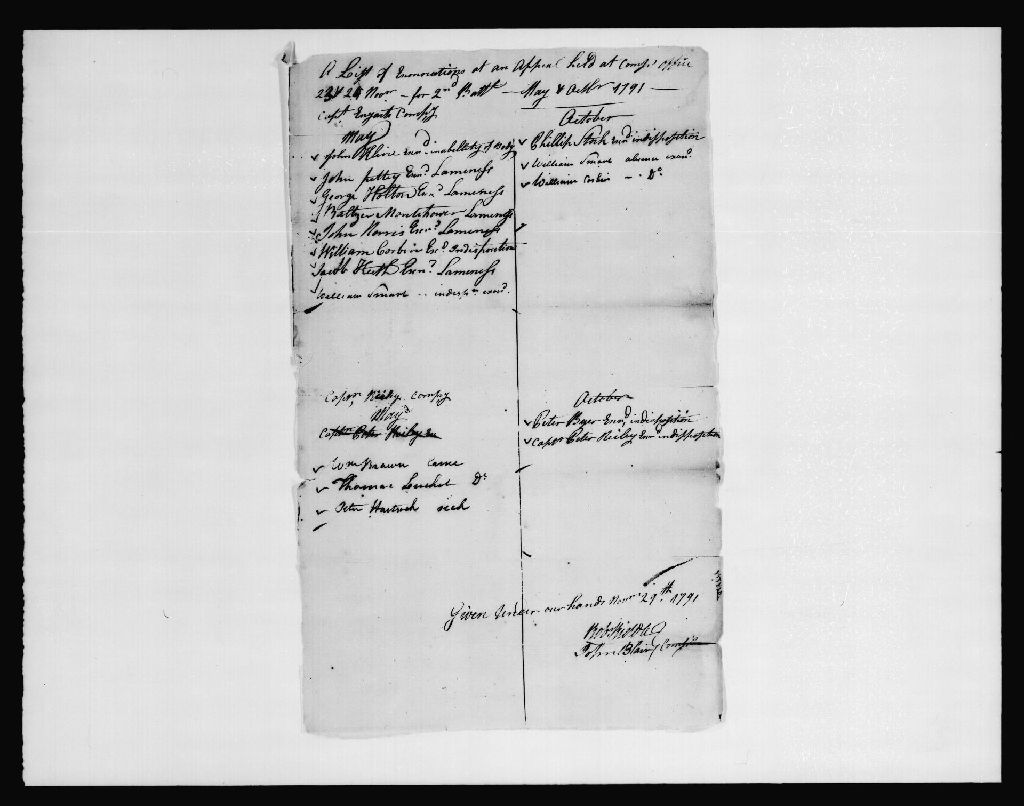 A List of Exonerations at an Appeal held at Comps. Office
23 & 24 Novr – for 2nd Batt. – May & Octbr 1791 –
Capt Enyarts Compy
May
John Kline Exnd. inability of Body
John pettey Exnd. Lameness
George Holton Exnd. Lameness
Baltzer Lameness
John Norris Exnd. Lameness
William Corbin Exd. Indisposition
Jacob Keith Exnd. Lameness
William Smart .. indispn. exond.
October
Phillip Stork Exnd indisposition
William Smart absence exond.
William Corbin – . Do
Captn. Rieleys Compy
May
Captn Peter Rieley Exn
Wm Brawn Came
Thomas Do
Peter Hartsock sick
October
Peter Byer Exnd. indisposition
Captn Peter Rieley Exnd indisposition
Given Under our hands Novr. 29th. 1791
John Blair